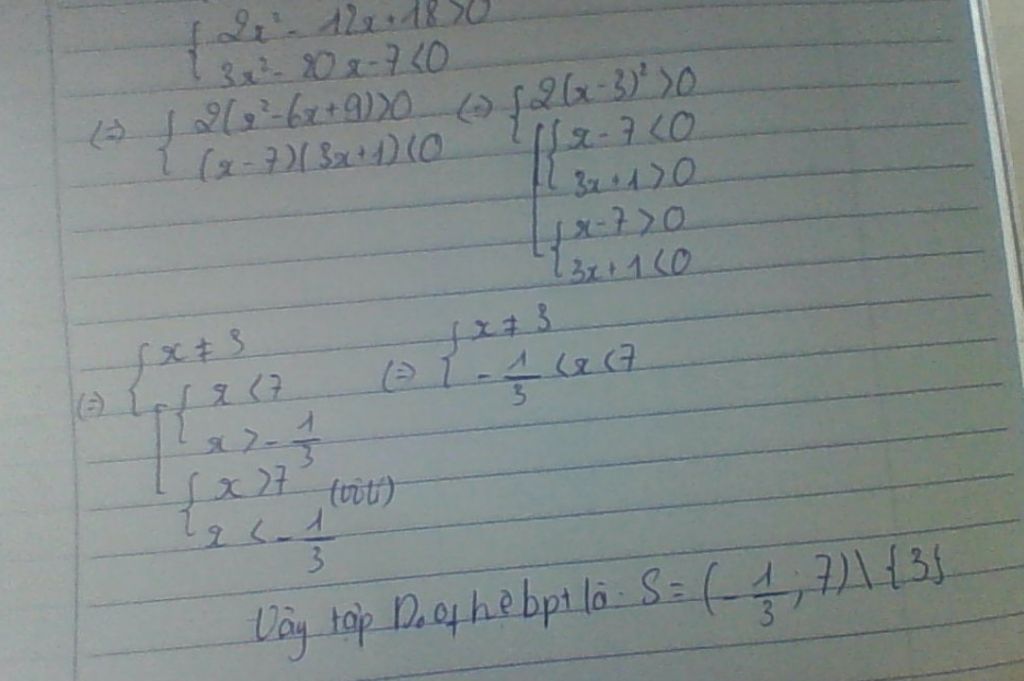 { 2x² - 12x + 18 > 0
{ 3x² - 20x - 7 < 0
(=) { 2(x² - 6x + 9) > 0 (=) { 2(x - 3)² > 0
{ (x - 7)(3x + 1) < 0 [ { x - 7 < 0
{ 3x + 1 > 0
{ x - 7 > 0
{ 3x + 1 < 0
(=) { x ≠ 3 (=) { x ≠ 3
[ { x < 7 { -1/3 < x < 7
{ x > -1/3
{ x > 7 (vôlí)
{ x < -1/3
Vậy tập D. of hệ bpt là: S = (-1/3; 7) \ {3}